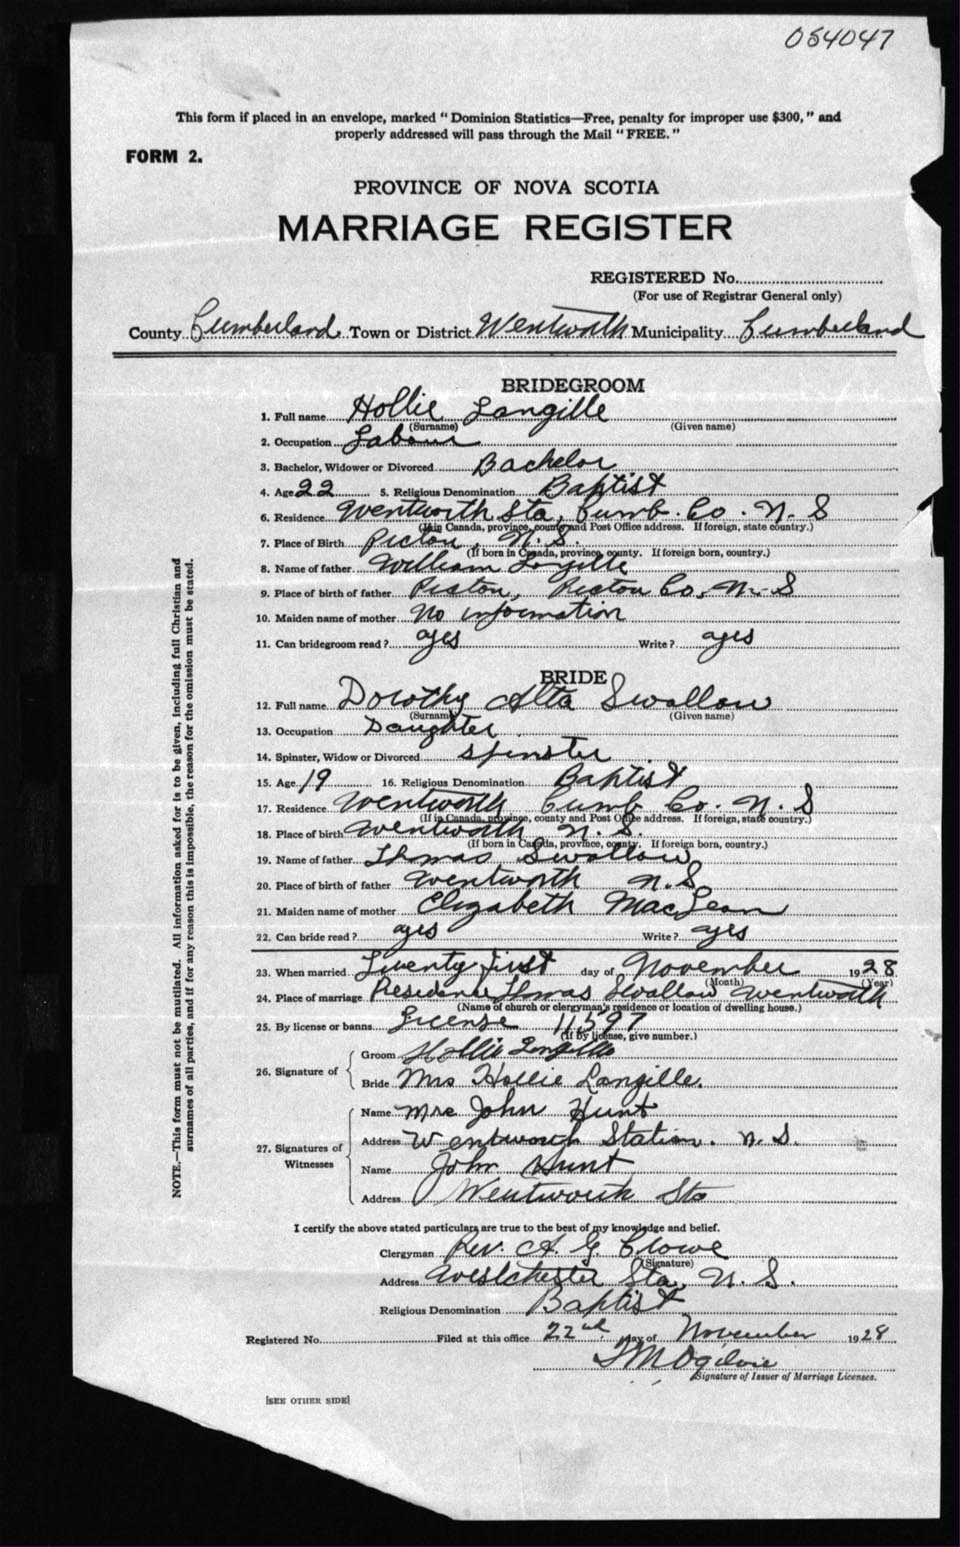 054047
This form if placed in an envelope, marked "Dominion Statistics—Free, penalty for improper use $300," and
properly addressed will pass through the Mail "FREE."
FORM 2.
PROVINCE OF NOVA SCOTIA
MARRIAGE REGISTER
REGISTERED No.
(For use of Registrar General only)
County Cumberland Town or District Wentworth Municipality Cumberland
BRIDEGROOM
1. Full name Hollie Langille
(Surname) (Given name)
2. Occupation Labour
3. Bachelor, Widower or Divorced Bachelor
4. Age 22 5. Religious Denomination Baptist
6. Residence Wentworth Sta, Cumb. Co. N. S
(If in Canada, province, county and Post Office address. If foreign, state country.)
7. Place of Birth Pictou, N. S.
(If born in Canada, province, county. If foreign born, country.)
8. Name of father William Langille
9. Place of birth of father Pictou, Pictou Co, N. S
10. Maiden name of mother No information
11. Can bridegroom read? ayes Write? ayes
BRIDE
12. Full name Dorothy Alta Swallow
(Surname) (Given name)
13. Occupation Daughter
14. Spinster, Widow or Divorced Spinster
15. Age 19 16. Religious Denomination Baptist
17. Residence Wentworth Cumb Co. N. S
(If in Canada, province, county and Post Office address. If foreign, state country.)
18. Place of birth Wentworth N. S.
(If born in Canada, province, county. If foreign born, country.)
19. Name of father Thmas Swallow
20. Place of birth of father Wentworth N. S
21. Maiden name of mother Elizabeth MacLean
22. Can bride read? ayes Write? ayes
23. When married Twenty first day of November 1928
(Month) (Year)
24. Place of marriage Residence Thmas Swallow Wentworth
(Name of church or clergyman's residence or location of dwelling house.)
25. By license or banns License 11597
(If by license, give number.)
26. Signature of
Groom Hollie Langille
Bride Mrs Hollie Langille.
27. Signatures of Witnesses
Name Mrs John Hunt
Address Wentworth Station. N. S.
Name John Hunt
Address Wentworth Sta
I certify the above stated particulars are true to the best of my knowledge and belief.
Clergyman Rev. A. G Crowe
(Signature)
Address Westchester Sta, N. S.
Religious Denomination Baptist
Registered No. Filed at this office 22nd day of November 1928
Ogilvie
Signature of Issuer of Marriage Licenses.
[SEE OTHER SIDE]
NOTE.—This form must not be mutilated. All information asked for is to be given, including full Christian and
surnames of all parties, and if for any reason this is impossible, the reason for the omission must be stated.